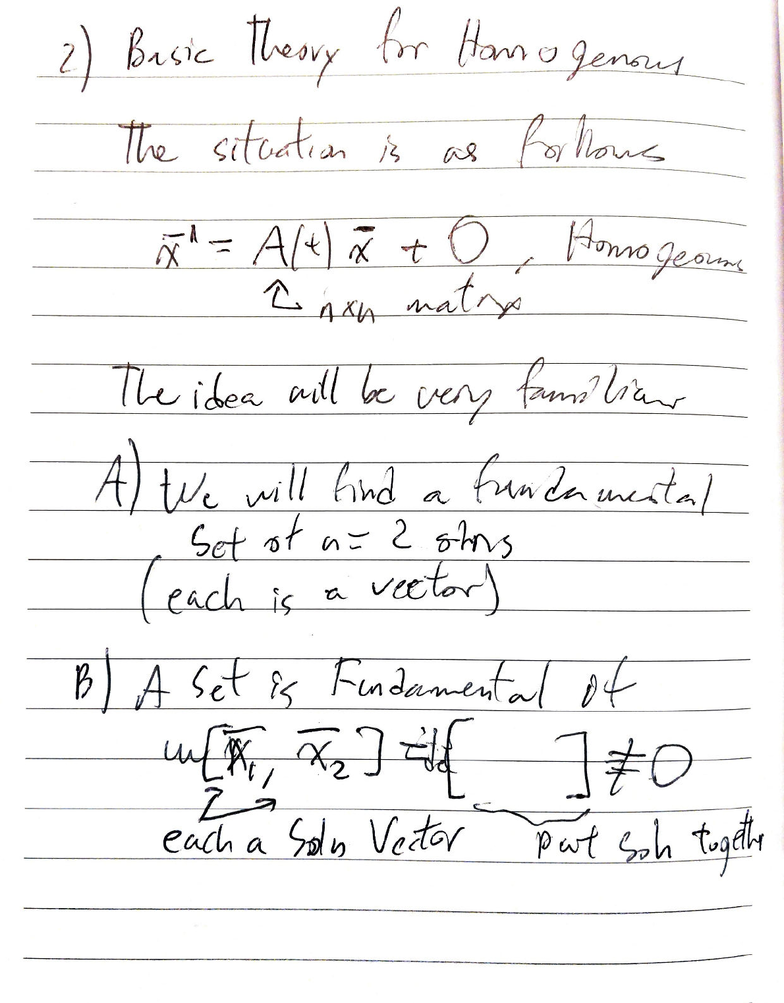 2) Basic Theory for Homogenous
The situation is as follows
x̄' = A(t) x̄ + 0, Homogeous
↑ nxn matrix
The idea will be very familiar
A) We will find a fundamental
Set of n = 2 solns
(each is a vector)
B) A Set is Fundamental if
w[x̄₁, x̄₂] = det[ ] ≠ 0
each a Soln Vector put soln together